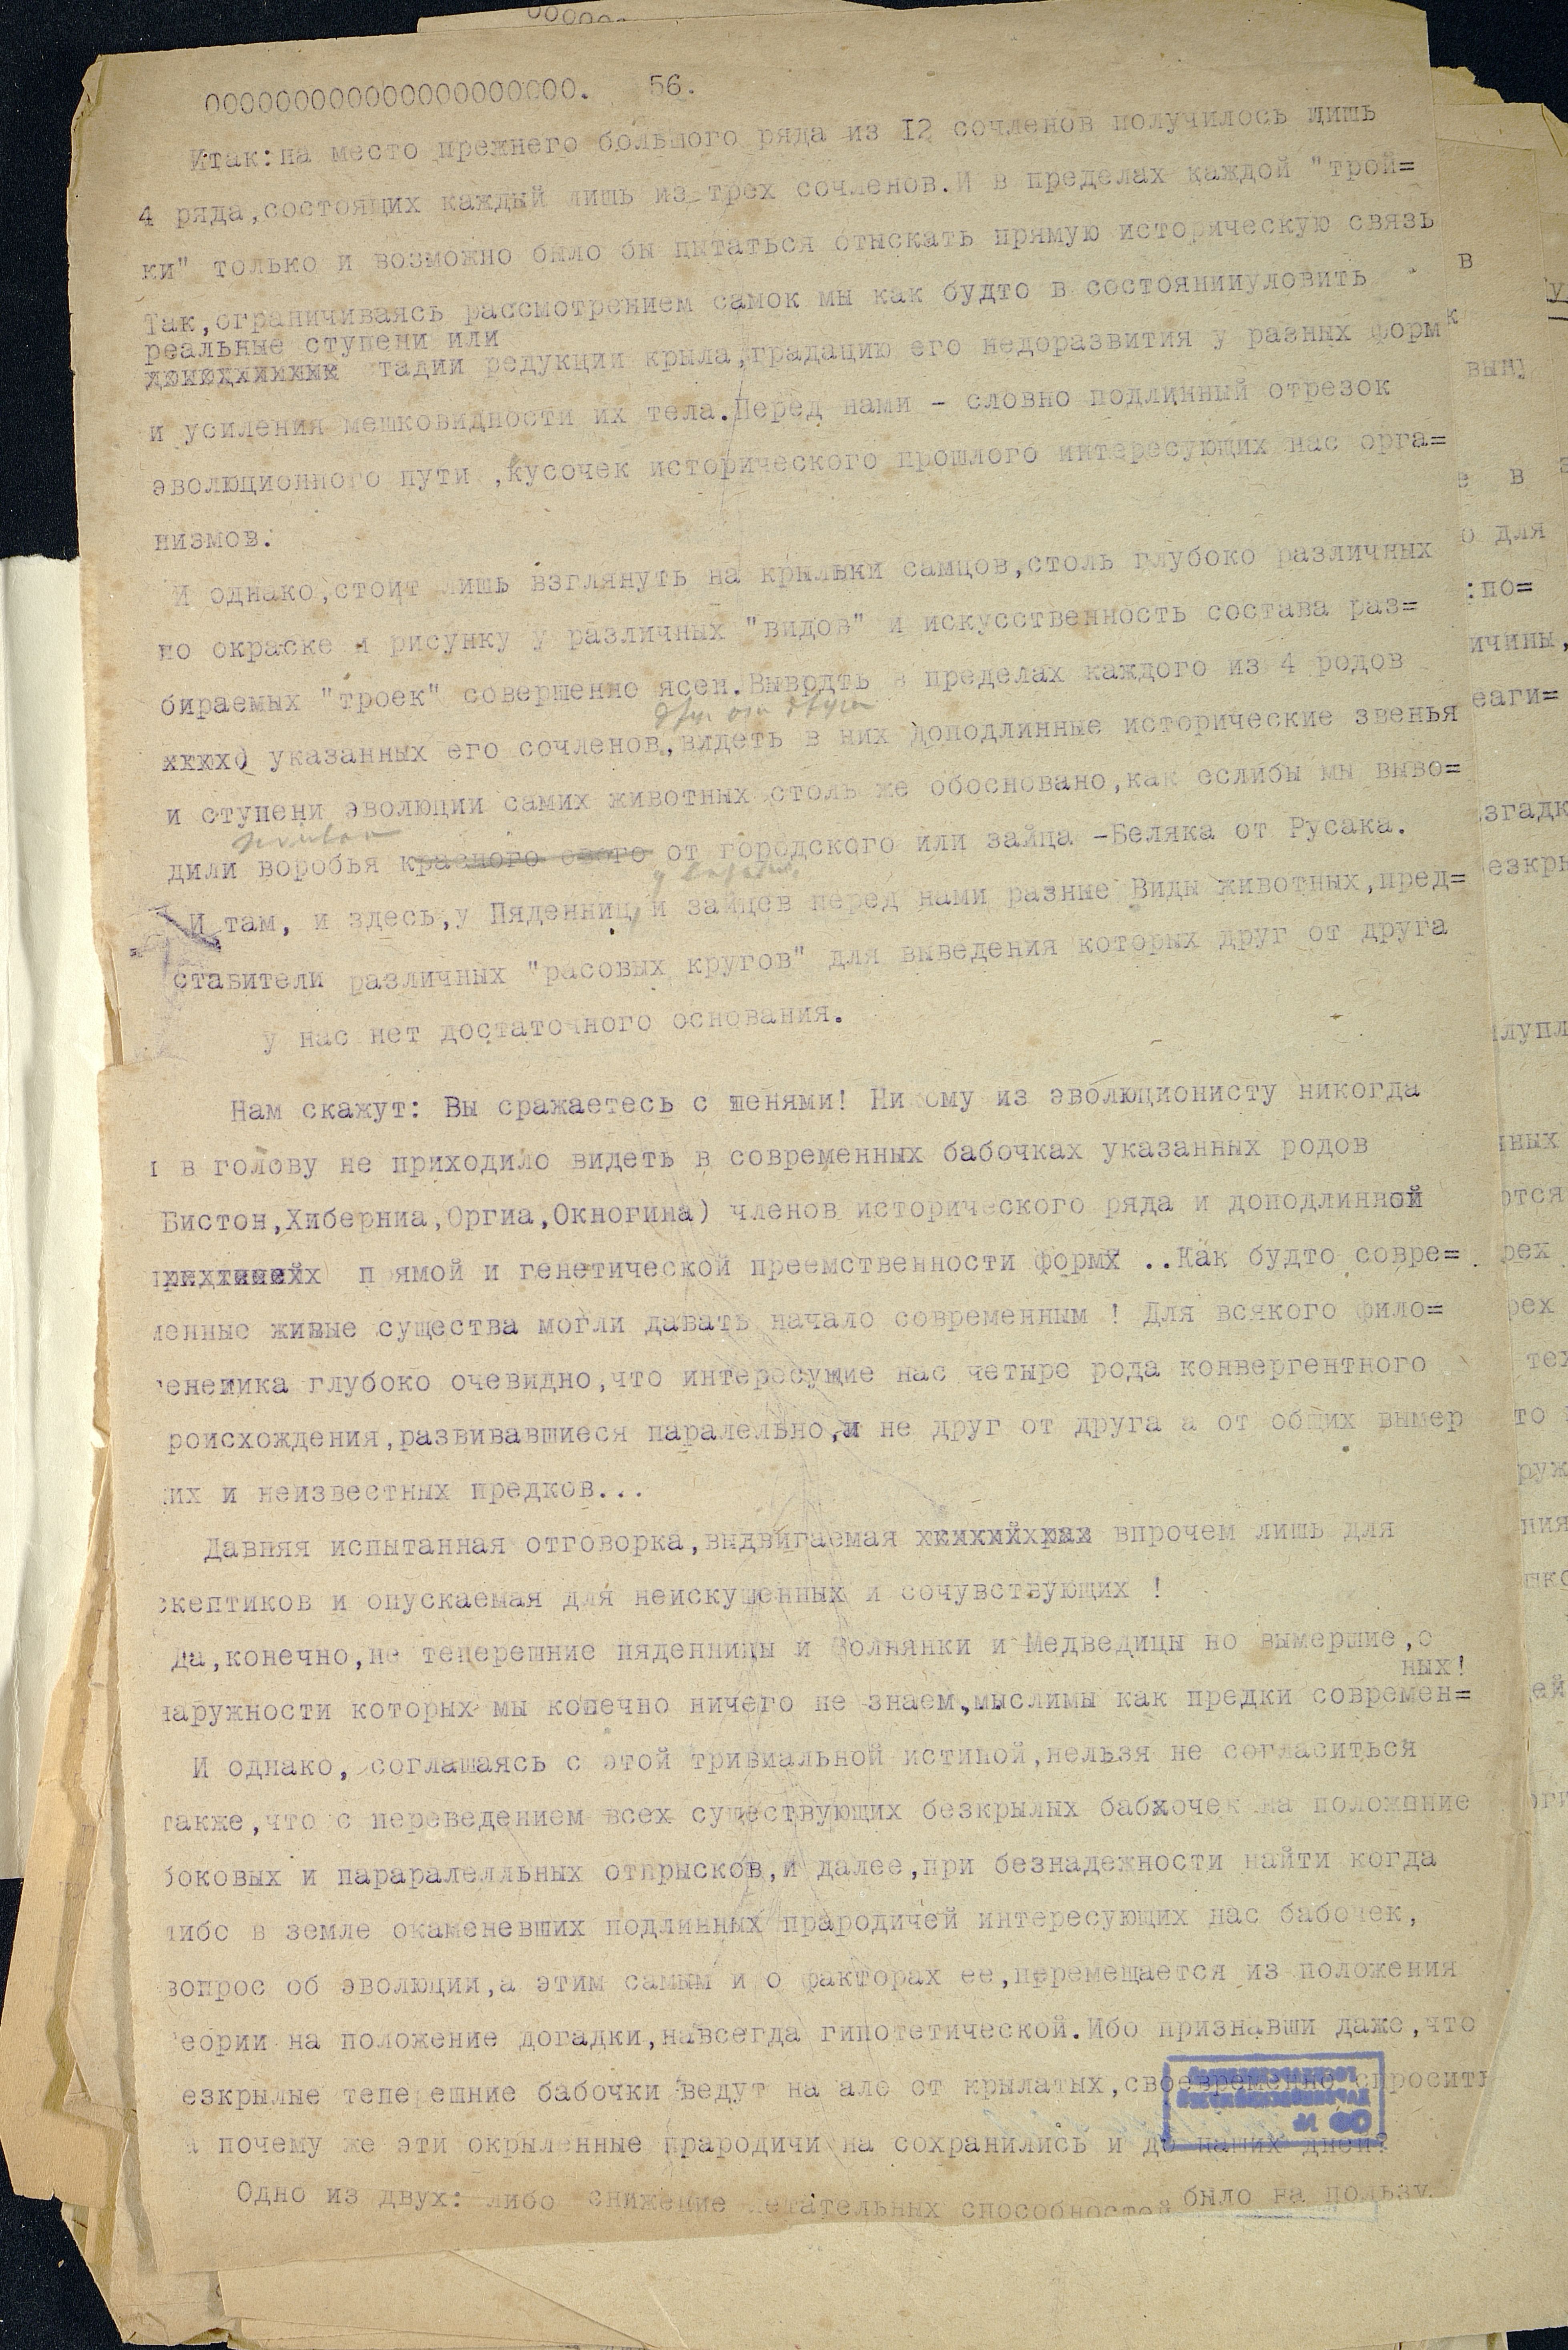 ООООООООООООООООООООО. 56.
Итак:на место прежнего большого ряда из I2 сочленов получилось лишь
4 ряда,состоящих каждый лишь из трех сочленов.И в пределах каждой "трой=
ки" только и возможно было бы пытаться отыскать прямую историческую связь
Так,ограничиваясь рассмотрением самок мы как будто в состоянииуловить
реальные ступени или
стадии редукции крыла,градацию его недоразвития у разных форм
и усиления мешковидности их тела.Перед нами - словно подлинный отрезок
эволюционного пути ,кусочек исторического прошлого интересующих нас орга=
низмов.
И однако,стоит лишь взглянуть на крыльки самцов,столь глубоко различных
по окраске и рисунку у различных "видов" и искусственность состава раз=
бираемых "троек" совершенно ясен.Выводть в пределах каждого из 4 родов
друг от друга
указанных его сочленов,видеть в них доподлинные исторические звенья
и ступени эволюции самих животных столь же обосновано,как еслибы мы выво=
дили воробья красного от городского или зайца -Беляка от Русака.
И там, и здесь,у Пяденниц и зайцев перед нами разные Виды животных,пред=
ставители различных "расовых кругов" для выведения которых друг от друга
у нас нет достаточного основания.
Нам скажут: Вы сражаетесь с тенями! Никому из эволюционисту никогда
и в голову не приходило видеть в современных бабочках указанных родов
Бистон,Хиберниа,Оргиа,Окногина) членов исторического ряда и доподлинной
прямой и генетической преемственности формх ..Как будто совре=
менные живые существа могли давать начало современным ! Для всякого фило=
генетика глубоко очевидно,что интересущие нас четыре рода конвергентного
роисхождения,развивавшиеся паралельно,и не друг от друга а от общих вымер
ших и неизвестных предков...
Давняя испытанная отговорка,выдвигаемая впрочем лишь для
скептиков и опускаемая для неискушенных и сочувствующих !
Да,конечно,не теперешние пяденницы и Волнянки и Медведицы но вымершие,о
ных!
наружности которых мы конечно ничего не знаем,мыслимы как предки современ=
И однако, соглашаясь с этой тривиальной истиной,нельзя не согласиться
также,что с переведением всех существующих безкрылых бабхочек на положение
боковых и параралелльных отпрысков,и далее,при безнадежности найти когда
либо в земле окаменевших подлинных прародичей интересующих нас бабочек,
вопрос об эволюции,а этим самым и о факторах ее,перемещается из положения
теории на положение догадки,навсегда гипотетической.Ибо признавши даже,что
езкрылые теперешние бабочки ведут на але от крылатых,своевременно спросить
а почему же эти окрыленные прародичи на сохранились и до наших дней?
Одно из двух: либо снижение летательных способностей было на пользу